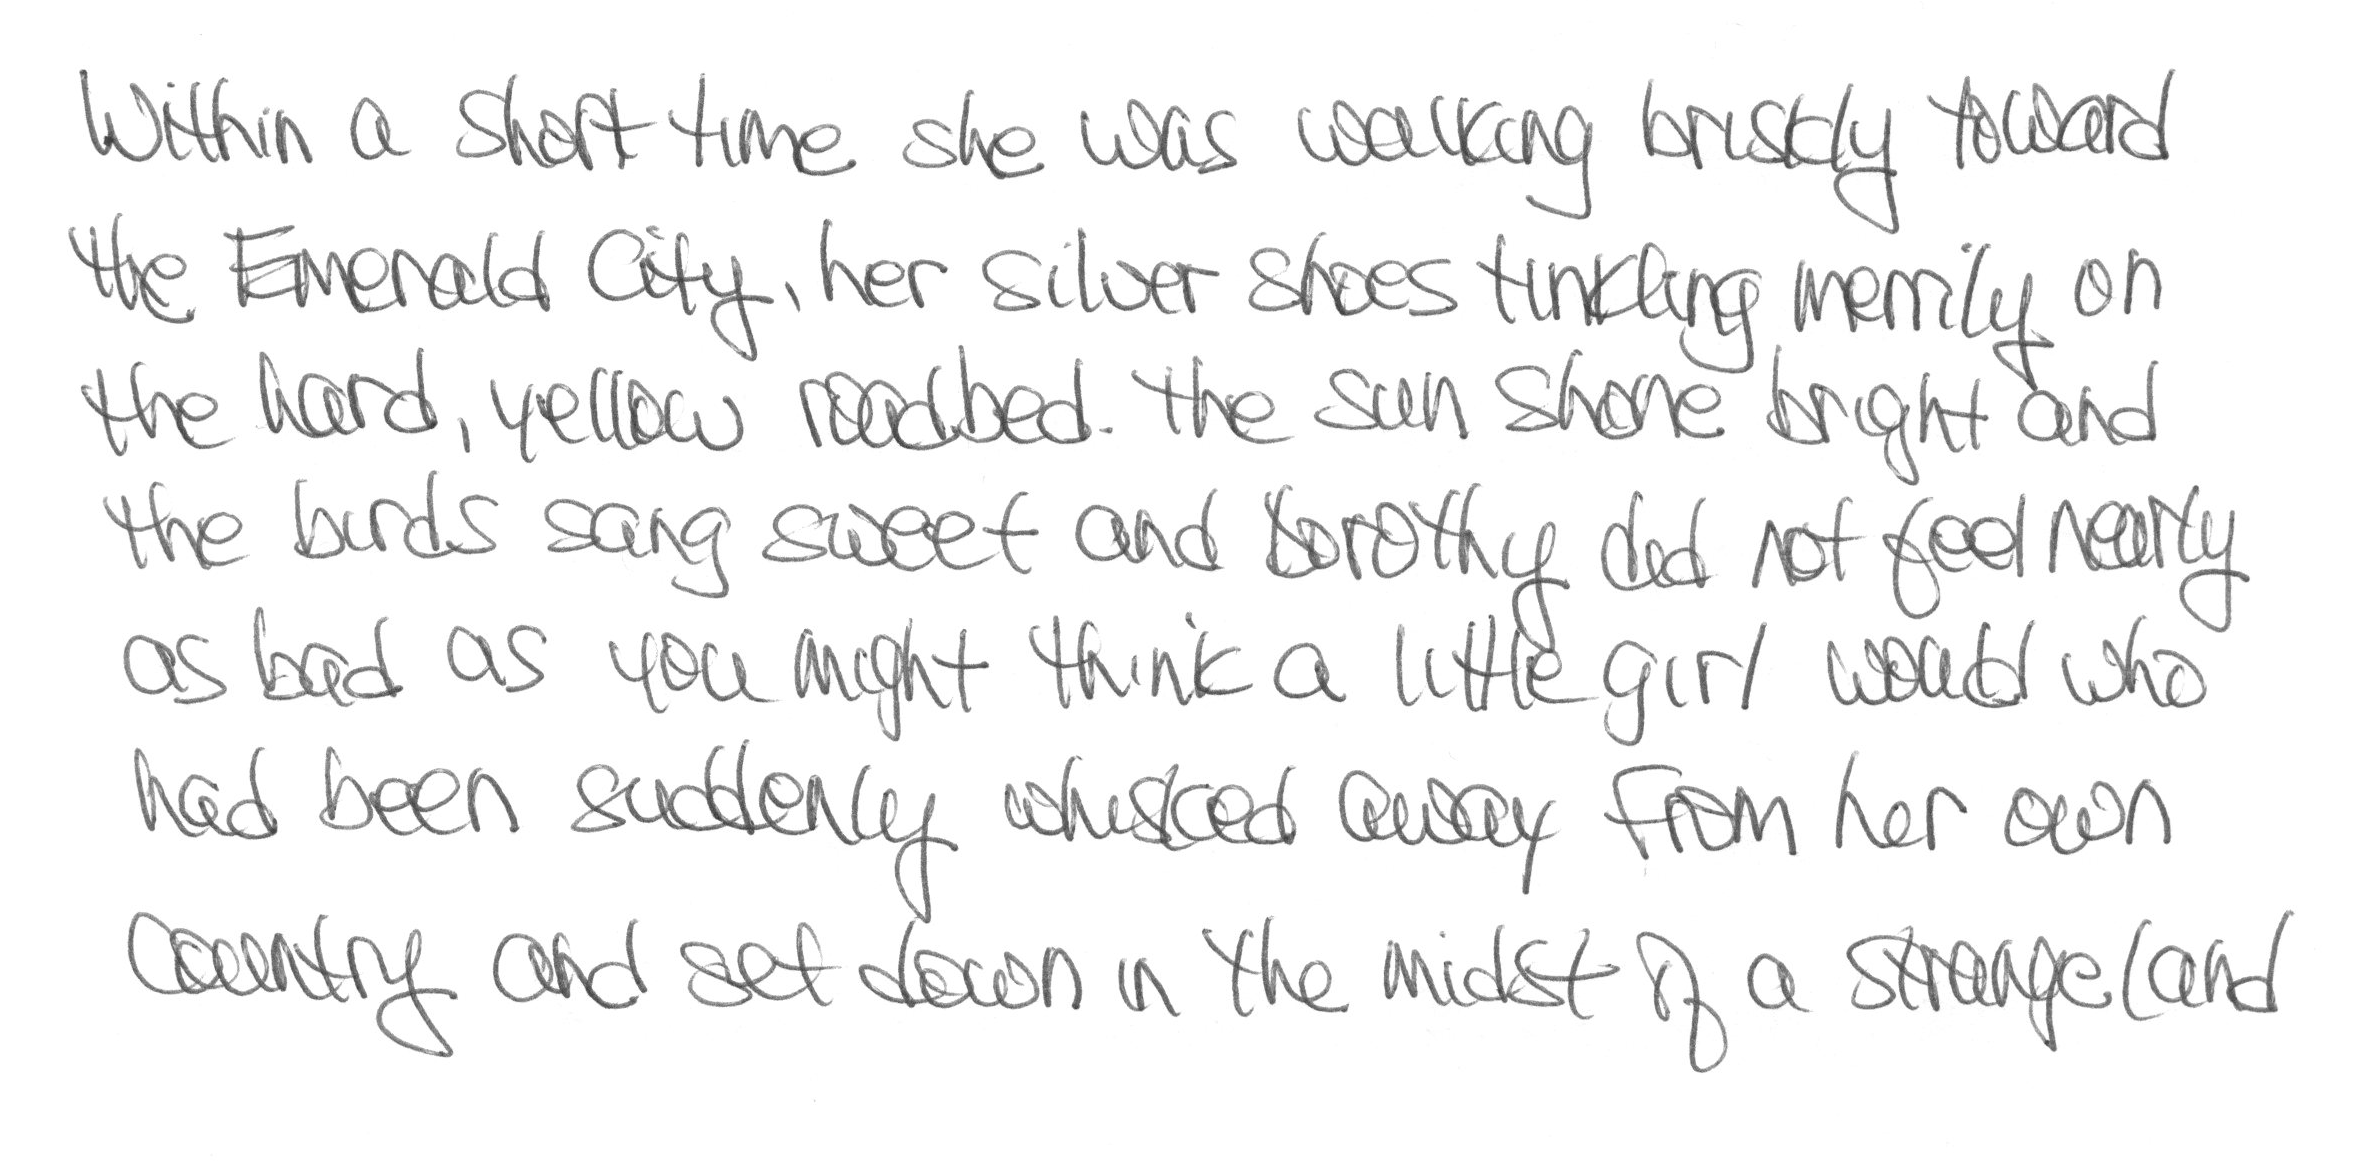 Within a short time she was walking briskly toward
the Emerald City, her silver shoes tinkling merrily on
the hard, yellow roadbed. The sun shone bright and
the birds sang sweet and Dorothy did not feel nearly
as bad as you might think a little girl would who
had been suddenly whisked away from her own
country and set down in the midst of a strange land